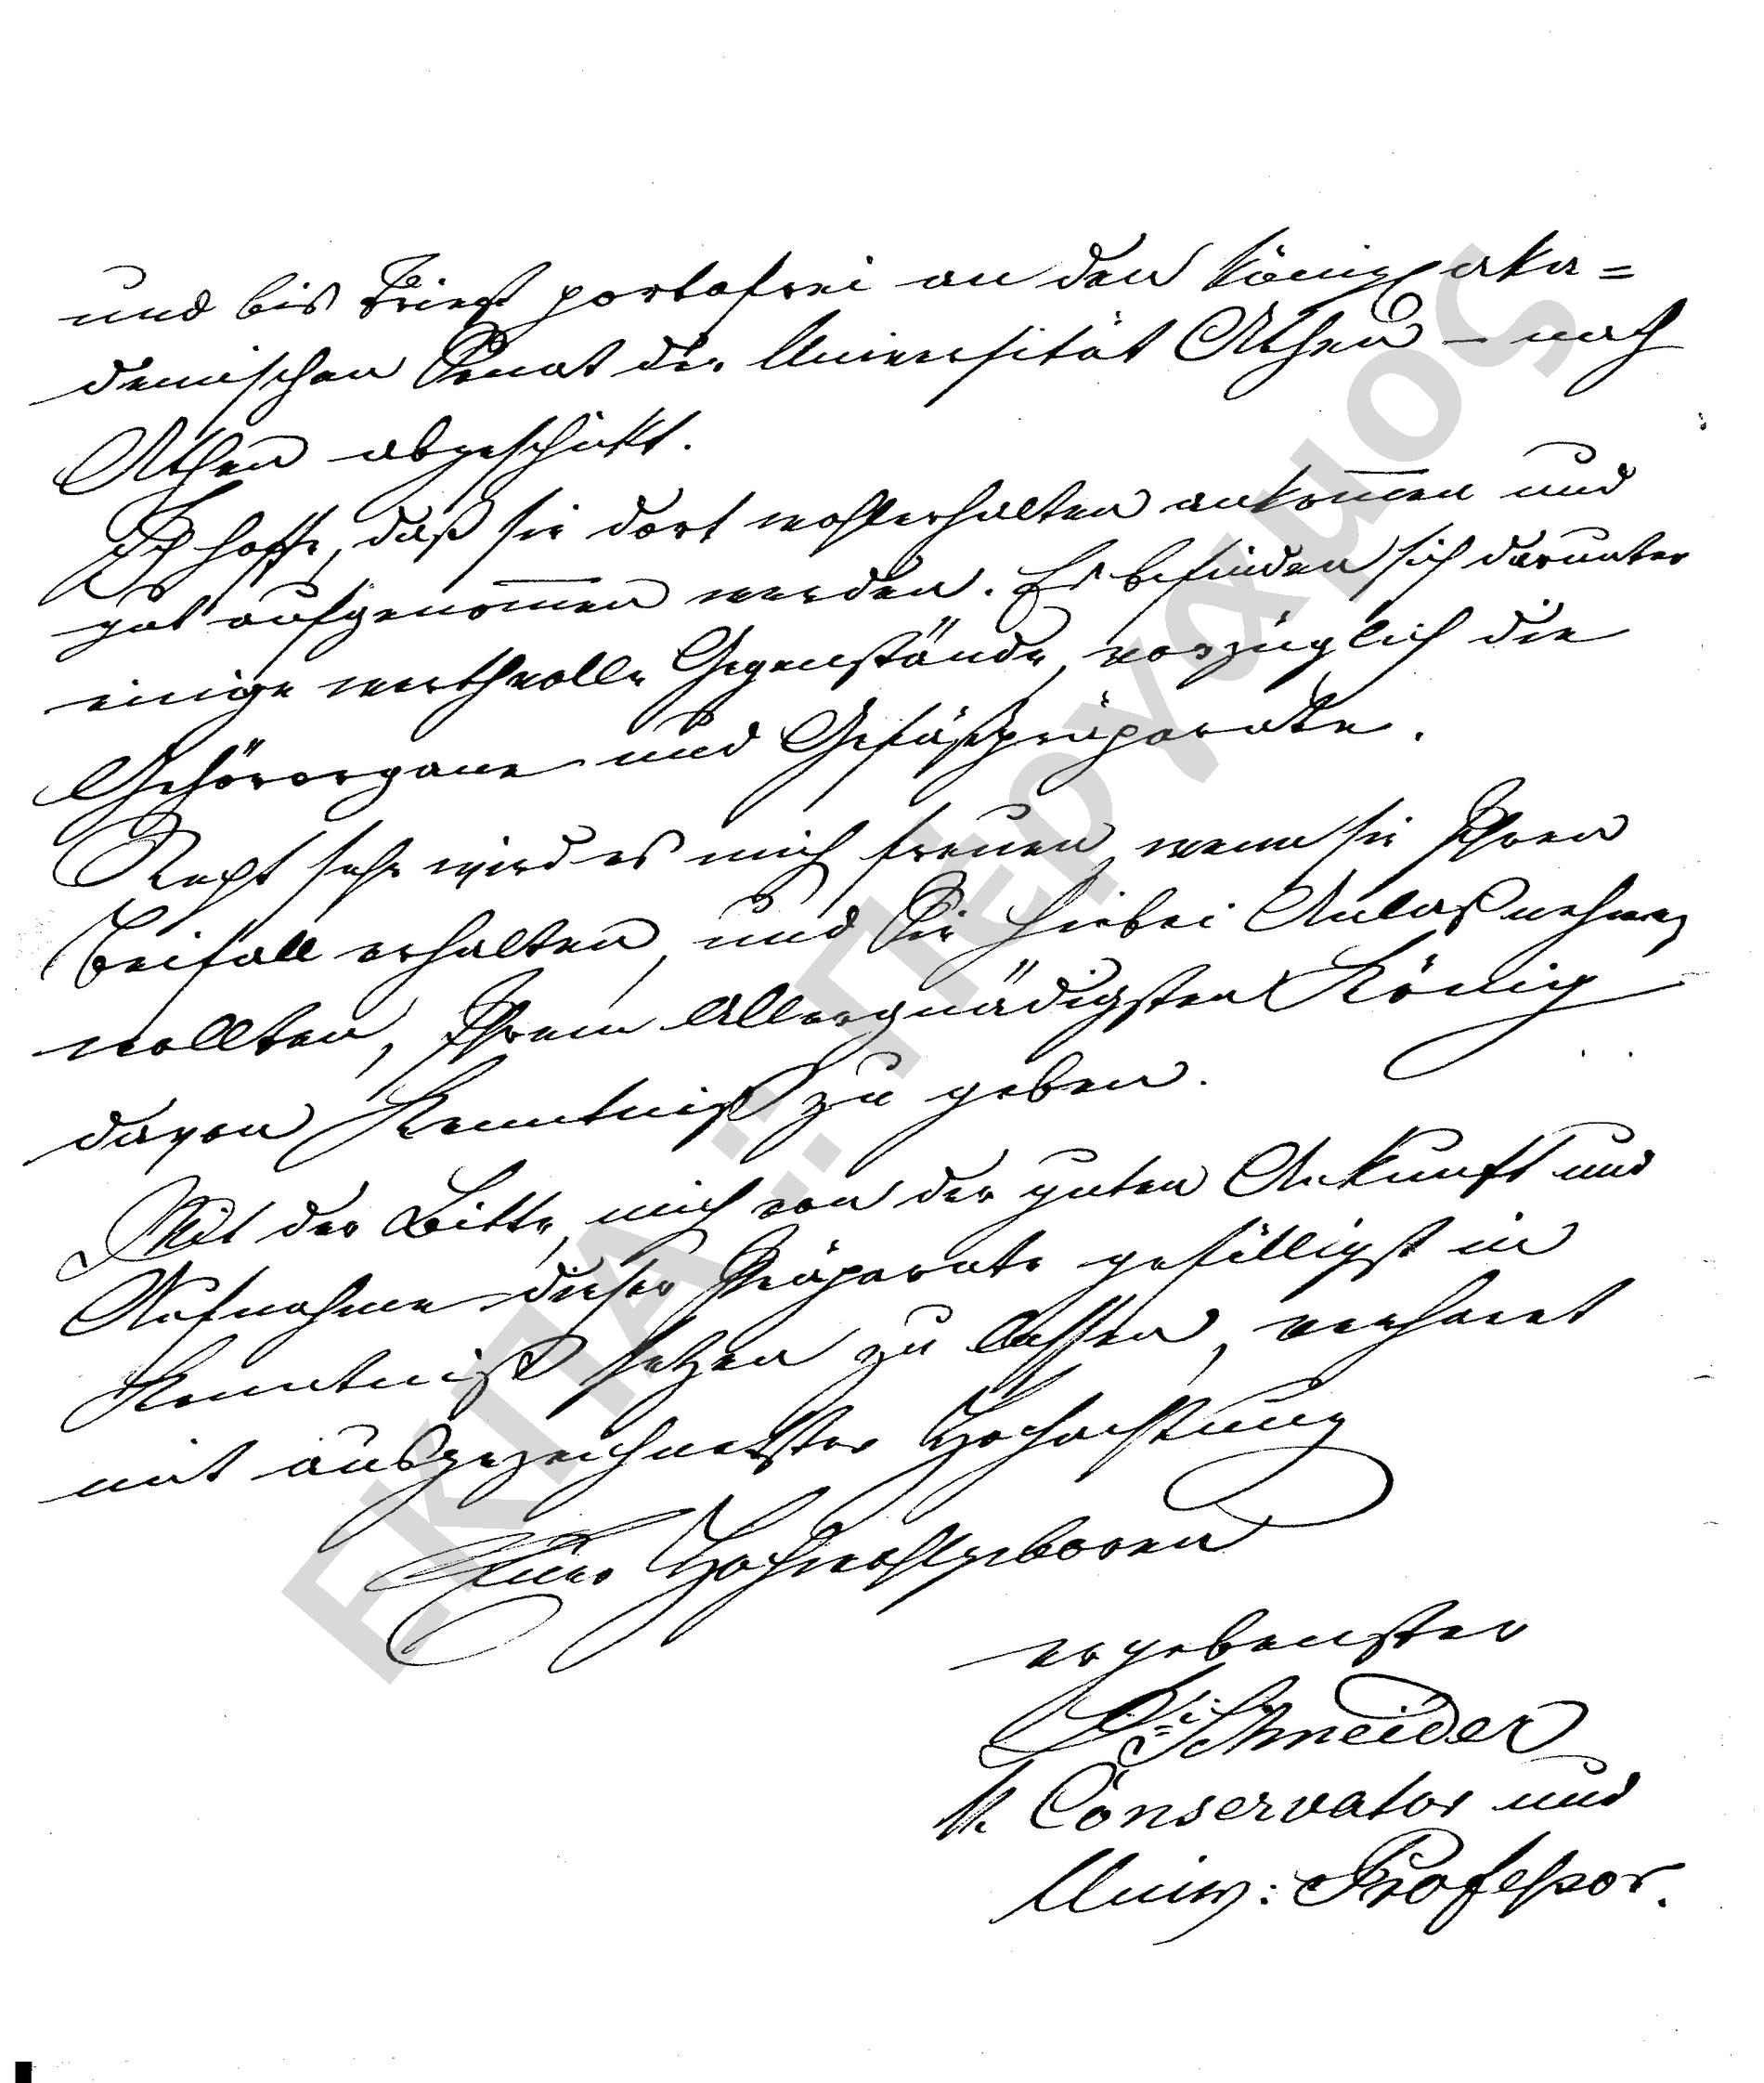 und bis Triest portofrei an den König. aka=
demischen Senat der Universität Athen – nach
Athen abgeschickt.
Ich hoffe, daß sie dort wohlerhalten ankom̅en und
gut aufgenom̅en werden. Es befinden sich darunter
einige werthvolle Gegenstände, vorzüglich die
Gehörorgane und Gefäßpräparate.
Recht sehr wird es mich freuen, wenn sie Ihren
Beifall erhalten, und Sie hiebei Anlaß nehmen
wollten, Ihrem Allergnädigsten König
davon Kenntniß zu geben.
Mit der Bitte, mich von der guten Ankunft und
Aufnahme dieser Präparate gefälligst in
Kenntniß setzen zu lassen, verharrt
mit ausgezeichnetster Hochachtung
Euer Hochwohlgeboren
ergebenster
Dr. Schneider
k. Conservator und
Univ: Professor.
ΕΚΠΑ.: Πέργαμος